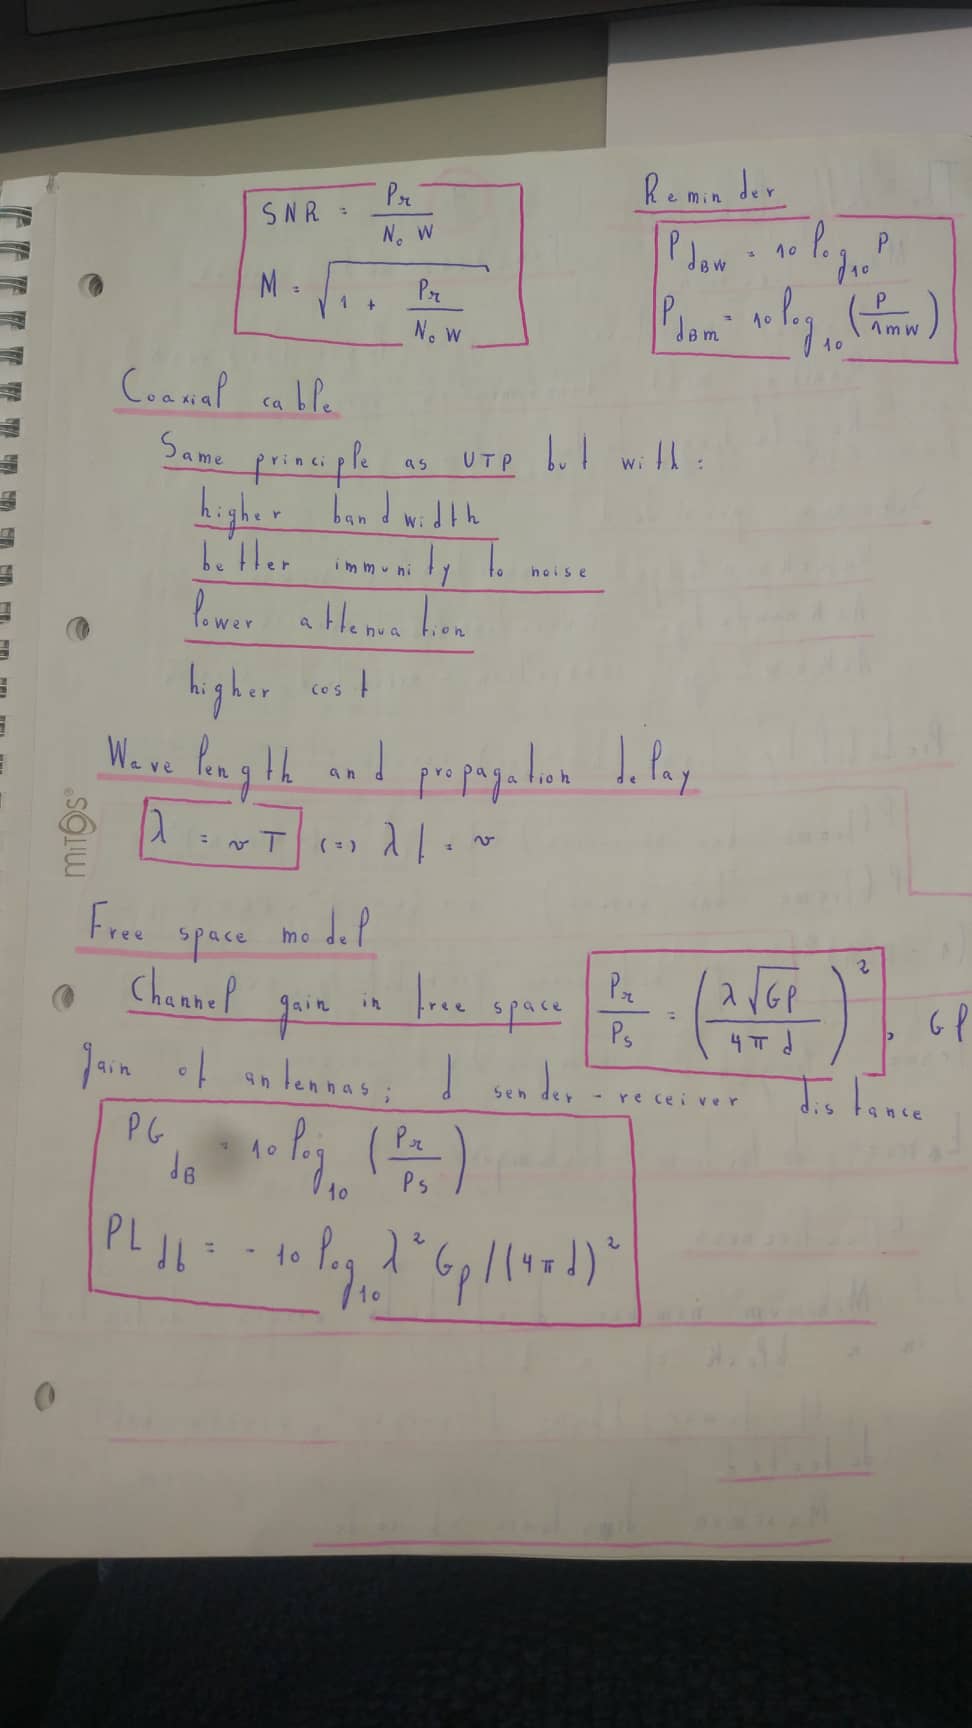 SNR = Pr / N₀ W
M = √(1 + Pr / N₀ W)
Reminder
P dBW = 10 log₁₀ P
P dBm = 10 log₁₀ (P / 1mW)
Coaxial cable
Same principle as UTP but with:
higher bandwidth
better immunity to noise
lower attenuation
higher cost
Wavelength and propagation delay
λ = vT (=) λf = v
Free space model
Channel gain in free space Pr / Ps = (λ√GP / 4πd)², GP
gain of antennas; d sender-receiver distance
PG dB = 10 log₁₀ (Pr / Ps)
PL db = -10 log₁₀ λ² Gp/(4πd)²
MITOS®